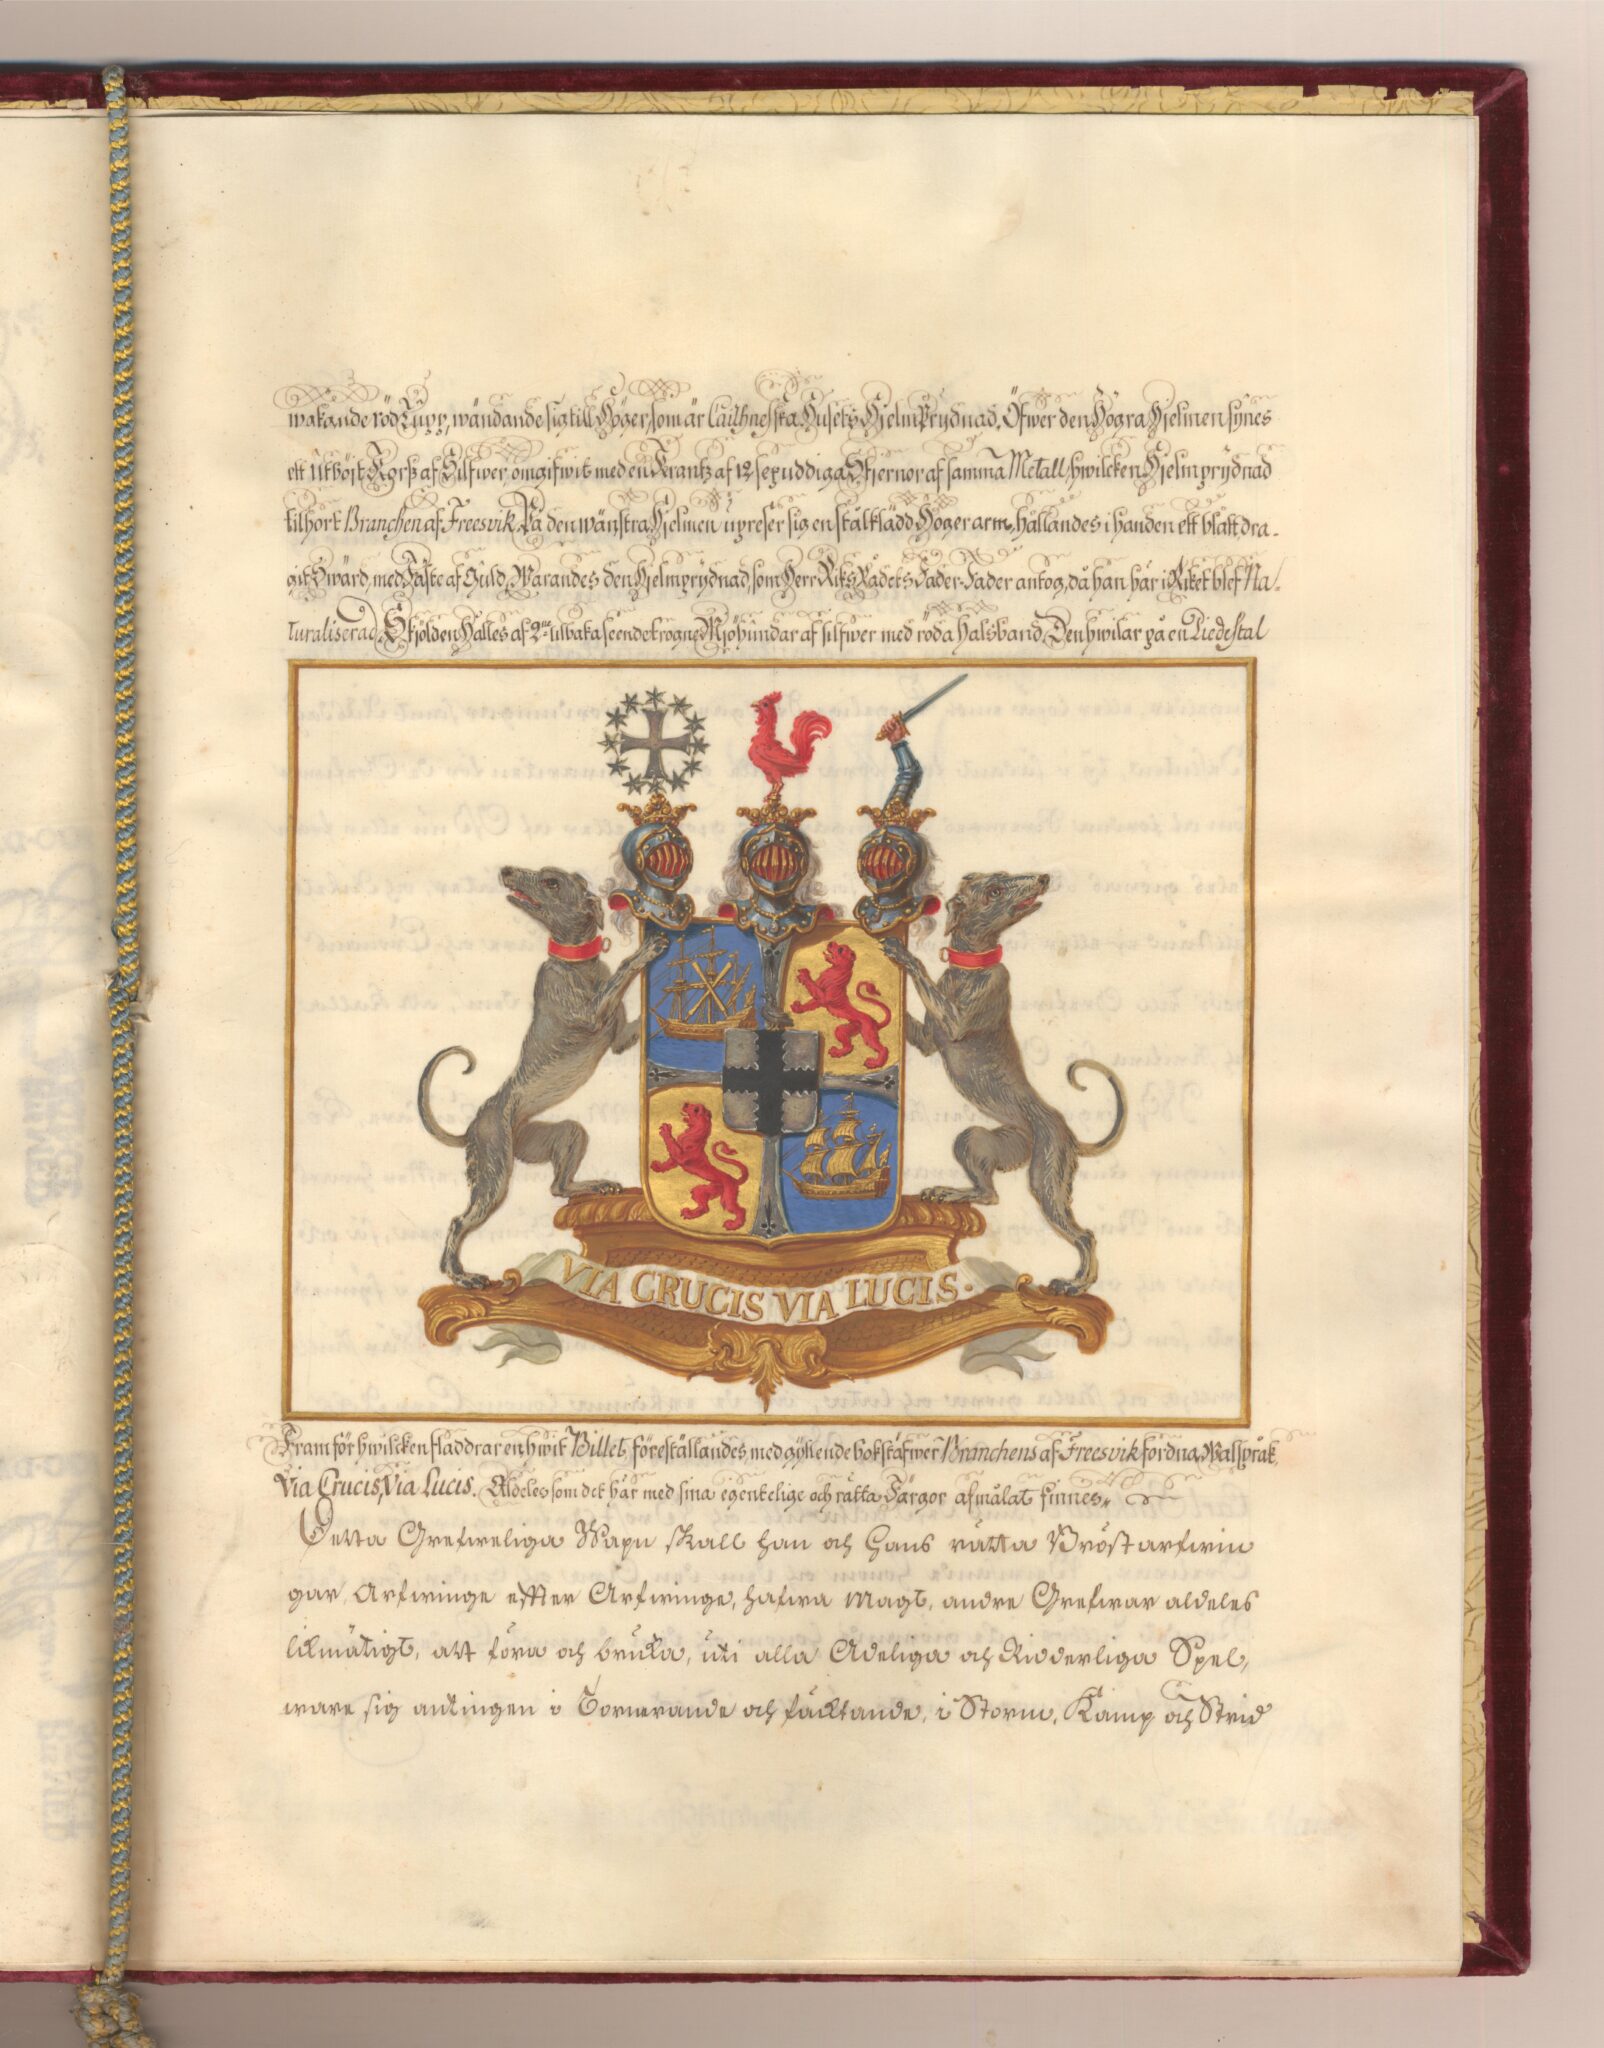 wakande röd Tupp, wändande sig till Höger, som är Caithnesska Husets Hjelm Prydnad. Öfwer den Högra Hjelmen synes
ett Utböjt Korß af Silfwer, omgifwit med en Krantz af 12 sexuddiga Stjernor af samma Metall, hwilcken Hjelmprydnad
tilhört Branchen af Freesvik. På den wänstra Hjelmen upreser sig en stålklädd Höger arm, hållandes i handen ett blått dra-
git Swärd, med Fäste af Guld, Warandes den Hjelmprydnad, som Herr Riks Rådets Fader-Fader antog, då han här i Riket blef Na-
turaliserad. Skjölden Hålles af 2ne tilbakaseende krogne Mjöhundar af silfwer med röda halsband. Den hwilar på en Piedestal
VIA CRUCIS VIA LUCIS.
Framför hwilcken fladdrar en hwit Billet, föreställandes med gyllende bokstäfwer Branchens af Freesvik fordna Walspråk,
Via Crucis, Via Lucis. Aldeles som det här med sina egentelige och rätta Färgor afmålat finnes.
Detta Grefweliga Wapn skall han och Hans rätta Bröstarfwin
gar, Arfwinge effter Arfwinge, hafwa Magt, andre Grefwar aldeles
likmätigt, att föra och bruka, uti alla Adeliga och Ridderliga Spel,
ware sig antingen i Tornerande och fäcktande, i Storm, Kamp och Strid